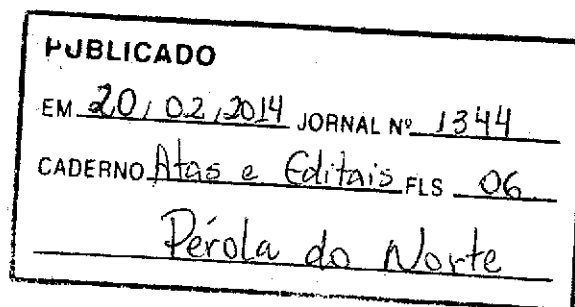 PUBLICADO
EM 20/02/2014 JORNAL Nº 1344
CADERNO Atas e Editais FLS 06
Pérola do Norte